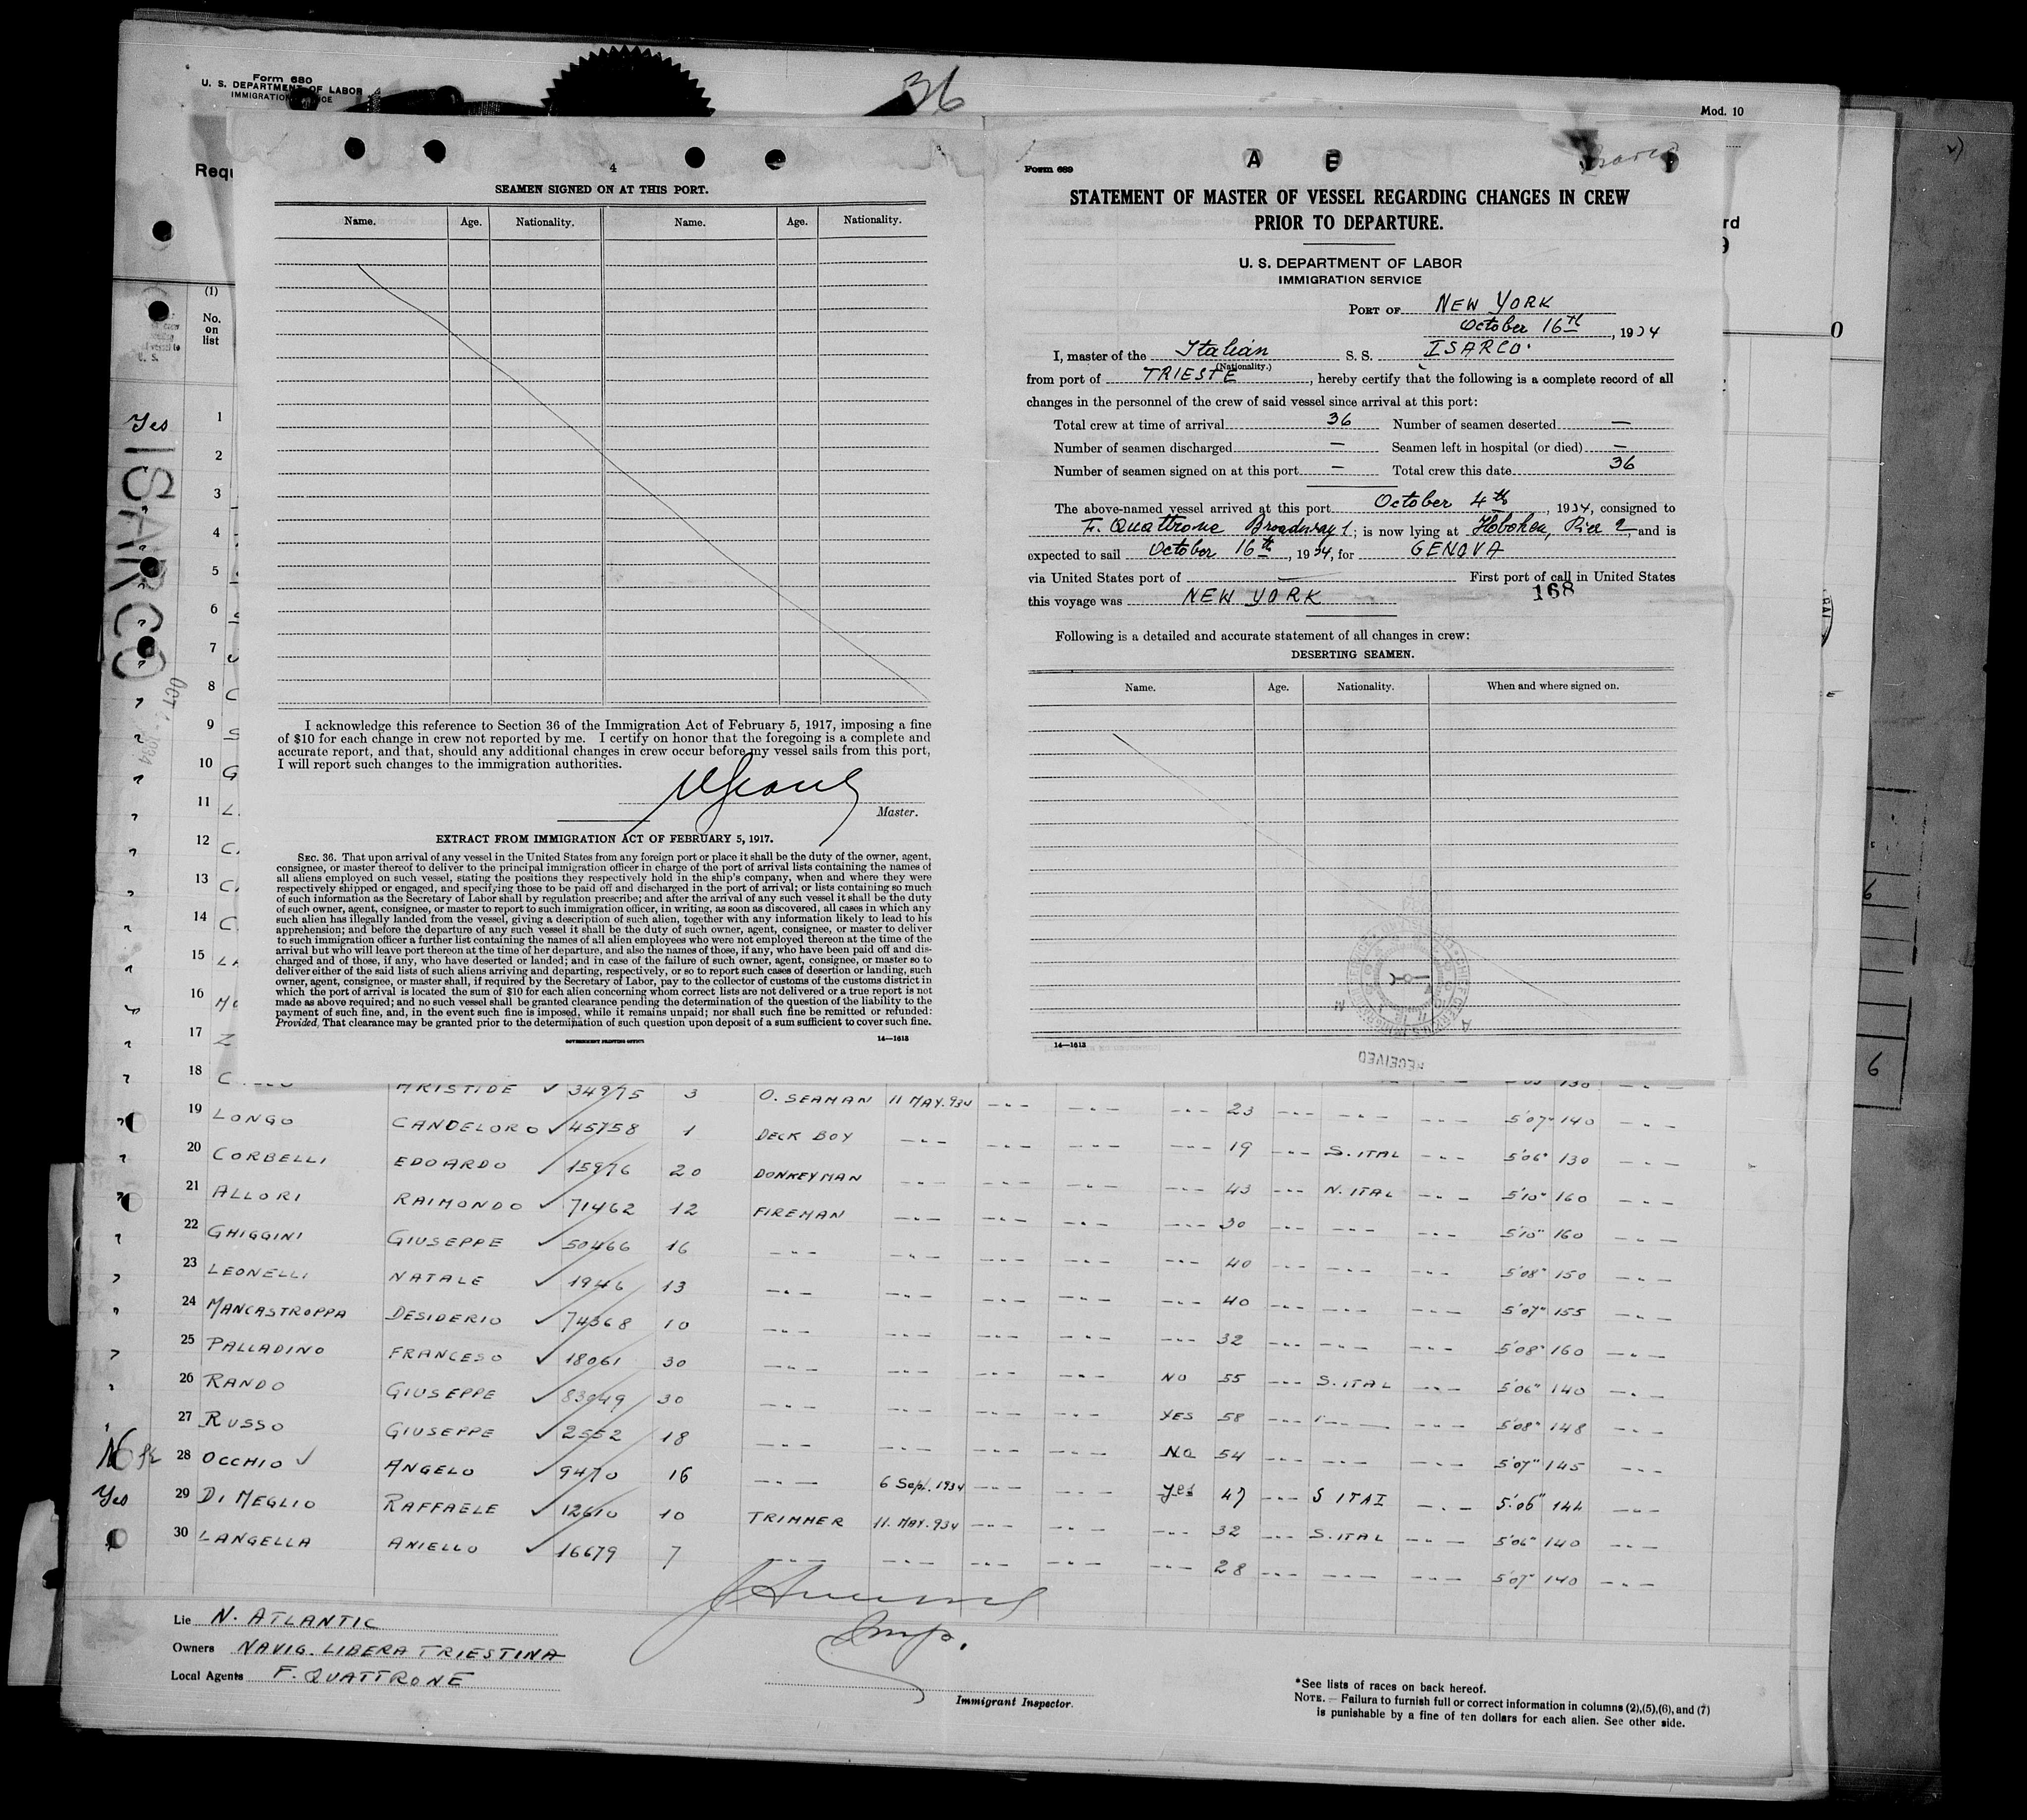 Form 680
U. S. DEPARTMENT OF LABOR
IMMIGRATION
36
Mod. 10
(1)
No.
on
list
Yes
ISARCO
4
SEAMEN SIGNED ON AT THIS PORT.
Name. Age. Nationality. Name. Age. Nationality.
I acknowledge this reference to Section 36 of the Immigration Act of February 5, 1917, imposing a fine
of $10 for each change in crew not reported by me. I certify on honor that the foregoing is a complete and
accurate report, and that, should any additional changes in crew occur before my vessel sails from this port,
I will report such changes to the immigration authorities.
Master.
EXTRACT FROM IMMIGRATION ACT OF FEBRUARY 5, 1917.
SEC. 36. That upon arrival of any vessel in the United States from any foreign port or place it shall be the duty of the owner, agent,
consignee, or master thereof to deliver to the principal immigration officer in charge of the port of arrival lists containing the names of
all aliens employed on such vessel, stating the positions they respectively hold in the ship's company, when and where they were
respectively shipped or engaged, and specifying those to be paid off and discharged in the port of arrival; or lists containing so much
of such information as the Secretary of Labor shall by regulation prescribe; and after the arrival of any such vessel it shall be the duty
of such owner, agent, consignee, or master to report to such immigration officer, in writing, as soon as discovered, all cases in which any
such alien has illegally landed from the vessel, giving a description of such alien, together with any information likely to lead to his
apprehension; and before the departure of any such vessel it shall be the duty of such owner, agent, consignee, or master to deliver
to such immigration officer a further list containing the names of all alien employees who were not employed thereon at the time of the
arrival but who will leave port thereon at the time of her departure, and also the names of those, if any, who have been paid off and dis-
charged and of those, if any, who have deserted or landed; and in case of the failure of such owner, agent, consignee, or master so to
deliver either of the said lists of such aliens arriving and departing, respectively, or so to report such cases of desertion or landing, such
owner, agent, consignee, or master shall, if required by the Secretary of Labor, pay to the collector of customs of the customs district in
which the port of arrival is located the sum of $10 for each alien concerning whom correct lists are not delivered or a true report is not
made as above required; and no such vessel shall be granted clearance pending the determination of the question of the liability to the
payment of such fine, and, in the event such fine is imposed, while it remains unpaid; nor shall such fine be remitted or refunded:
Provided, That clearance may be granted prior to the determination of such question upon deposit of a sum sufficient to cover such fine.
GOVERNMENT PRINTING OFFICE 14—1613
Form 689
A E
STATEMENT OF MASTER OF VESSEL REGARDING CHANGES IN CREW
PRIOR TO DEPARTURE.
U. S. DEPARTMENT OF LABOR
IMMIGRATION SERVICE
PORT OF NEW YORK
October 16th, 1934
I, master of the Italian S. S. ISARCO.
(Nationality.)
from port of TRIESTE, hereby certify that the following is a complete record of all
changes in the personnel of the crew of said vessel since arrival at this port:
Total crew at time of arrival 36 Number of seamen deserted —
Number of seamen discharged — Seamen left in hospital (or died) —
Number of seamen signed on at this port — Total crew this date 36
The above-named vessel arrived at this port October 4th, 1934, consigned to
F. Quattrone Broadway 1; is now lying at Hoboken, Pier 2, and is
expected to sail October 16th, 1934, for GENOVA
via United States port of — First port of call in United States
this voyage was NEW YORK
168
Following is a detailed and accurate statement of all changes in crew:
DESERTING SEAMEN.
Name. Age. Nationality. When and where signed on.
14—1613
RECEIVED
1
2
3
4
5
6
7
8
9
10
11
12
13
14
15
16
17
18 ARISTIDE 34975 3 O. SEAMAN 11 MAY.934 23 5'07" 140
19 LONGO CANDELORO 45758 1 DECK BOY 19 S. ITAL 5'06" 130
20 CORBELLI EDOARDO 15976 20 DONKEYMAN 43 N. ITAL 5'10" 160
21 ALLORI RAIMONDO 71462 12 FIREMAN 30 5'10" 160
22 GHIGGINI GIUSEPPE 50466 16 40 5'08" 150
23 LEONELLI NATALE 1946 13 40 5'07" 155
24 MANCASTROPPA DESIDERIO 74368 10 32 5'08" 160
25 PALLADINO FRANCESO 18061 30 NO 55 S. ITAL 5'06" 140
26 RANDO GIUSEPPE 83949 30 YES 58 5'08" 148
27 RUSSO GIUSEPPE 2552 18 No 54 5'07" 145
28 OCCHIO ANGELO 9470 16 6 Sept. 1934 yes 47 S ITAI 5'06" 144
Yes 29 DI MEGLIO RAFFAELE 12610 10 TRIMMER 11. MAY.934 32 S. ITAL 5'06" 140
30 LANGELLA ANIELLO 16679 7 28 5'07" 140
Lie N. ATLANTIC
Owners NAVIG. LIBERA TRIESTINA
Local Agents F. QUATTRONE
Insp.
Immigrant Inspector.
*See lists of races on back hereof.
NOTE. — Failura to furnish full or correct information in columns (2),(5),(6), and (7)
is punishable by a fine of ten dollars for each alien. See other side.